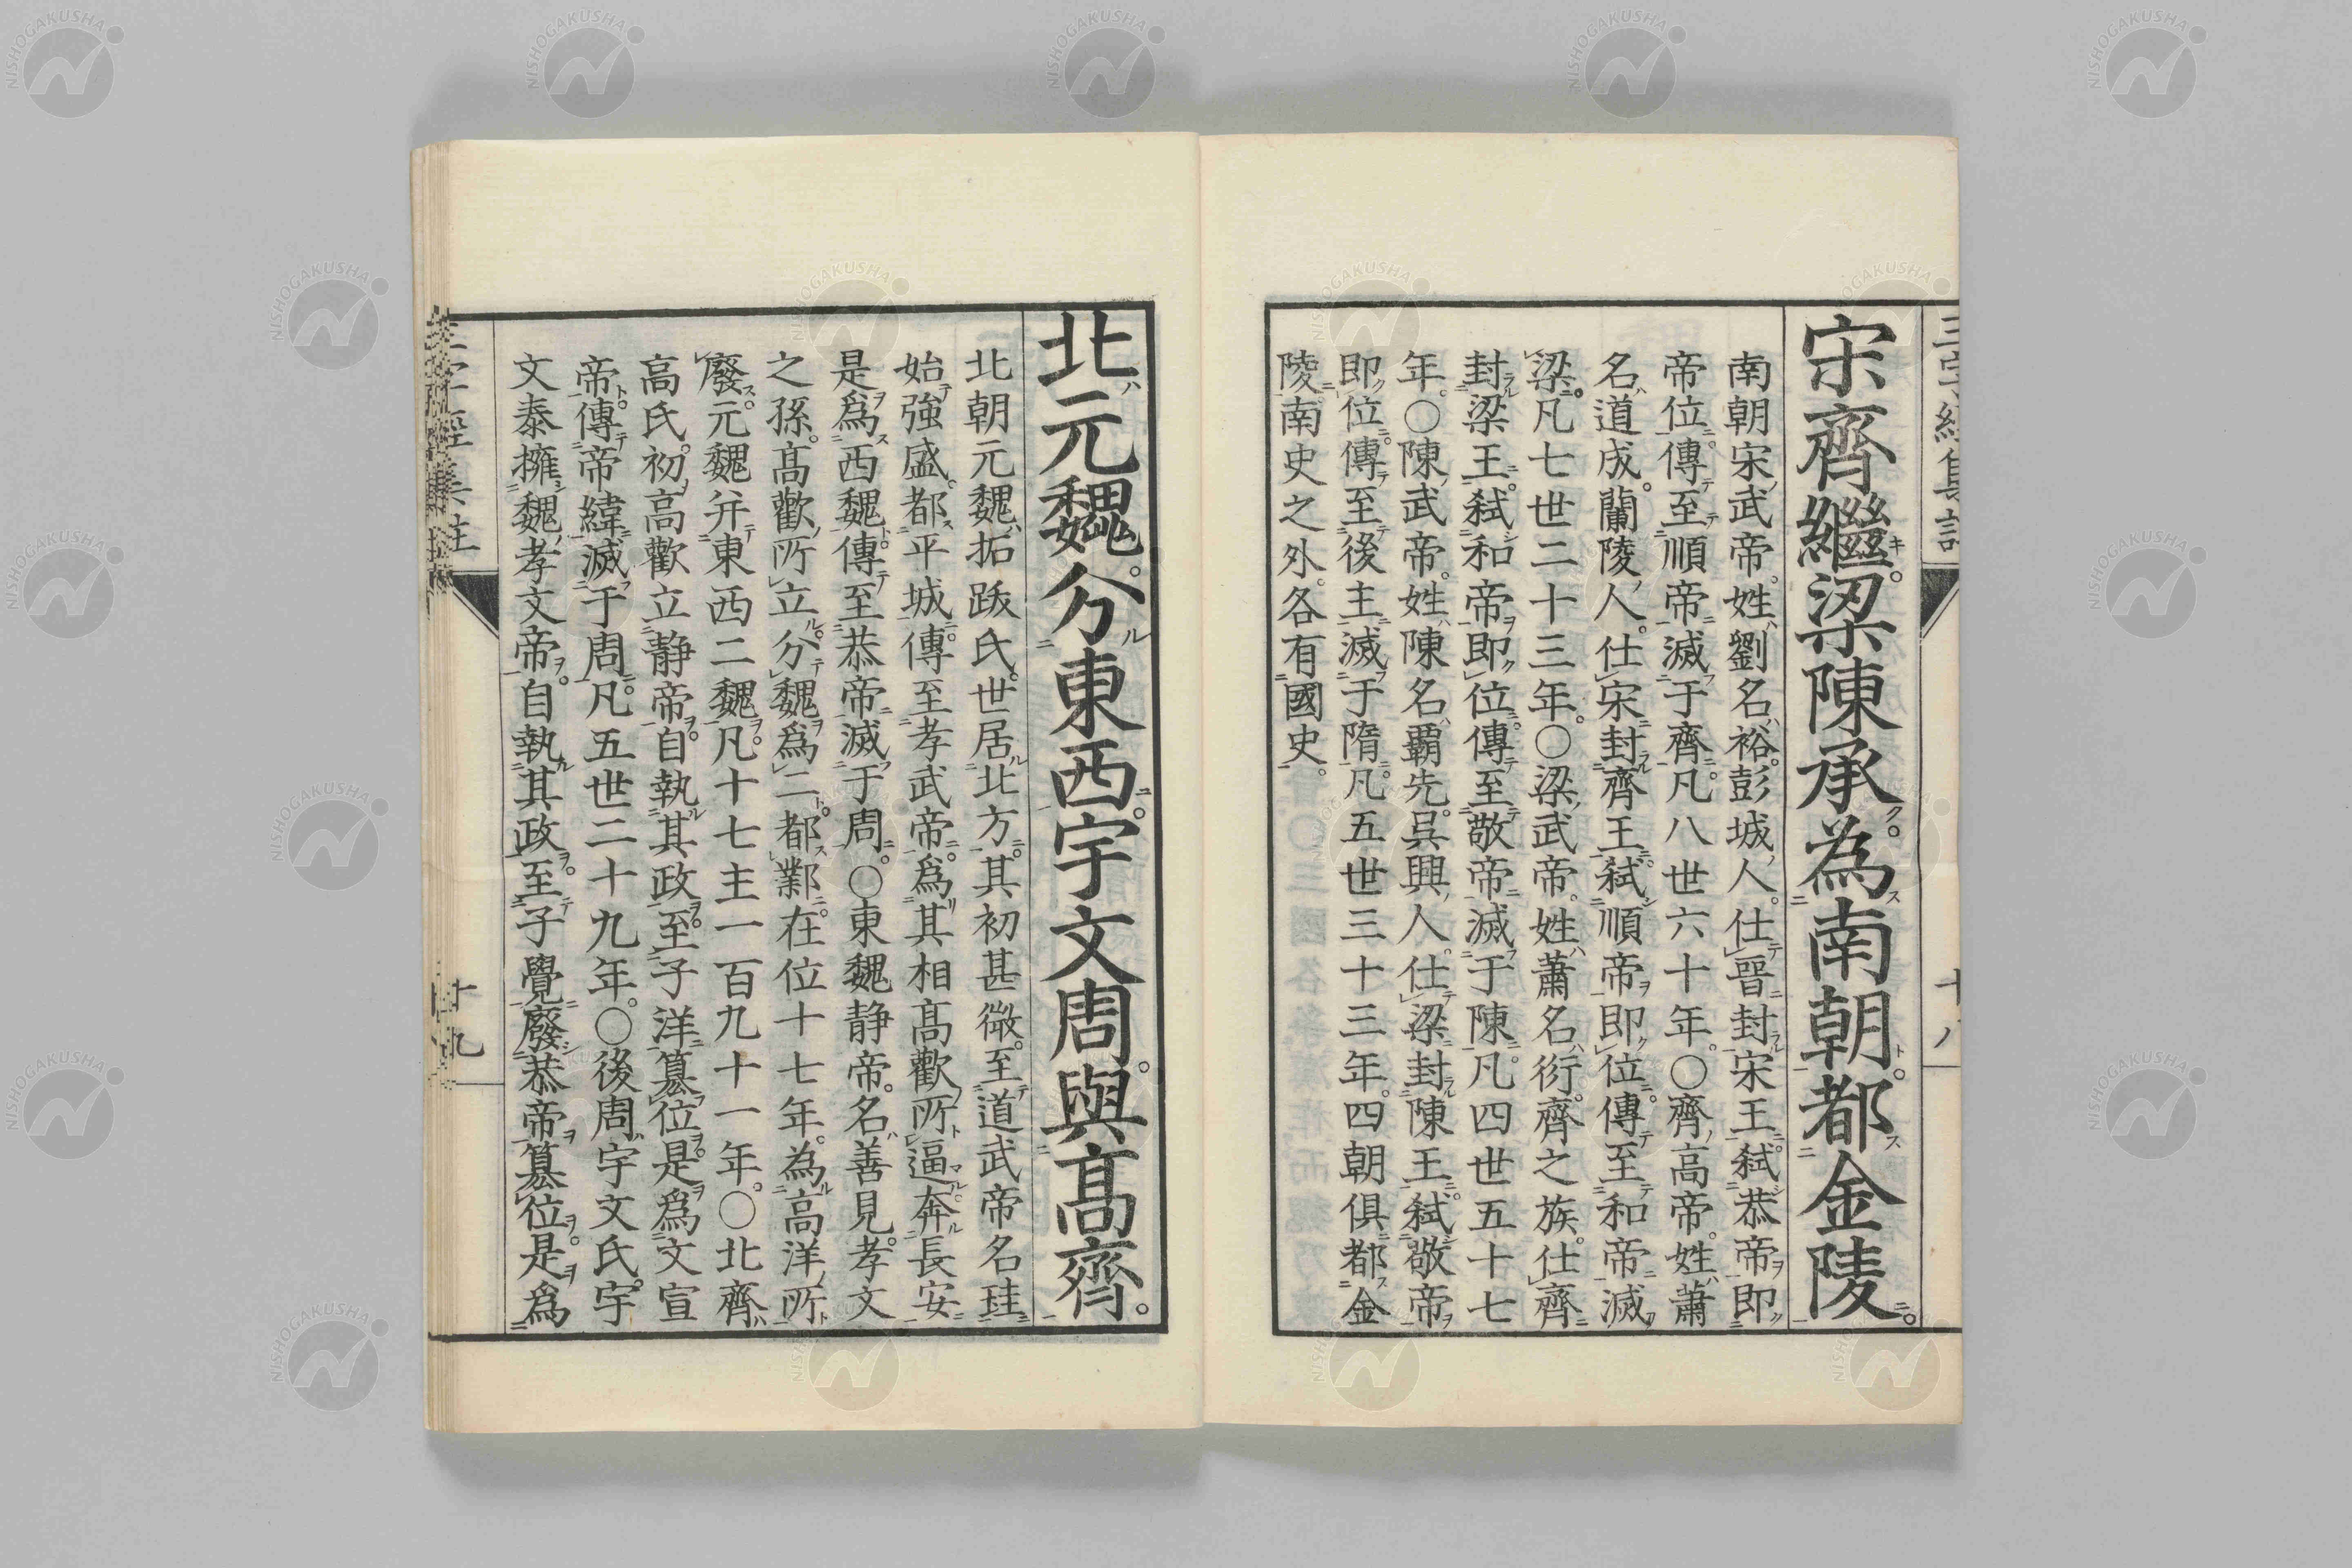 宋齊繼梁陳承為南朝都金陵
南朝宋武帝姓劉名裕彭城人仕晉封宋王弑恭帝即
帝位傳至順帝滅于齊凡八世六十年○齊高帝姓蕭
名道成蘭陵人仕宋封齊王弑順帝即位傳至和帝滅
梁凡七世二十三年○梁武帝姓蕭名衍齊之族仕齊
封梁王弑和帝即位傳至敬帝滅于陳凡四世五十七
年○陳武帝姓陳名覇先吳興人仕梁封陳王弑敬帝
即位傳至後主滅于隋凡五世三十三年四朝俱都金
陵南史之外各有國史
北元魏分東西宇文周與高齊
北朝元魏拓跋氏世居北方其初甚微至道武帝名珪
始強盛都平城傳至孝武帝為其相高歡所逼奔長安
是為西魏傳至恭帝滅于周○東魏静帝名善見孝文
之孫高歡所立分魏為二都鄴在位十七年為高洋所
廢元魏并東西二魏凡十七主一百九十一年○北齊
高氏初高歡立静帝自執其政至子洋篡位是為文宣
帝傳帝緯滅于周凡五世二十九年○後周宇文氏宇
文泰擁魏孝文帝自執其政至子覺廢恭帝篡位是為
十九
NISHOGAKUSHA